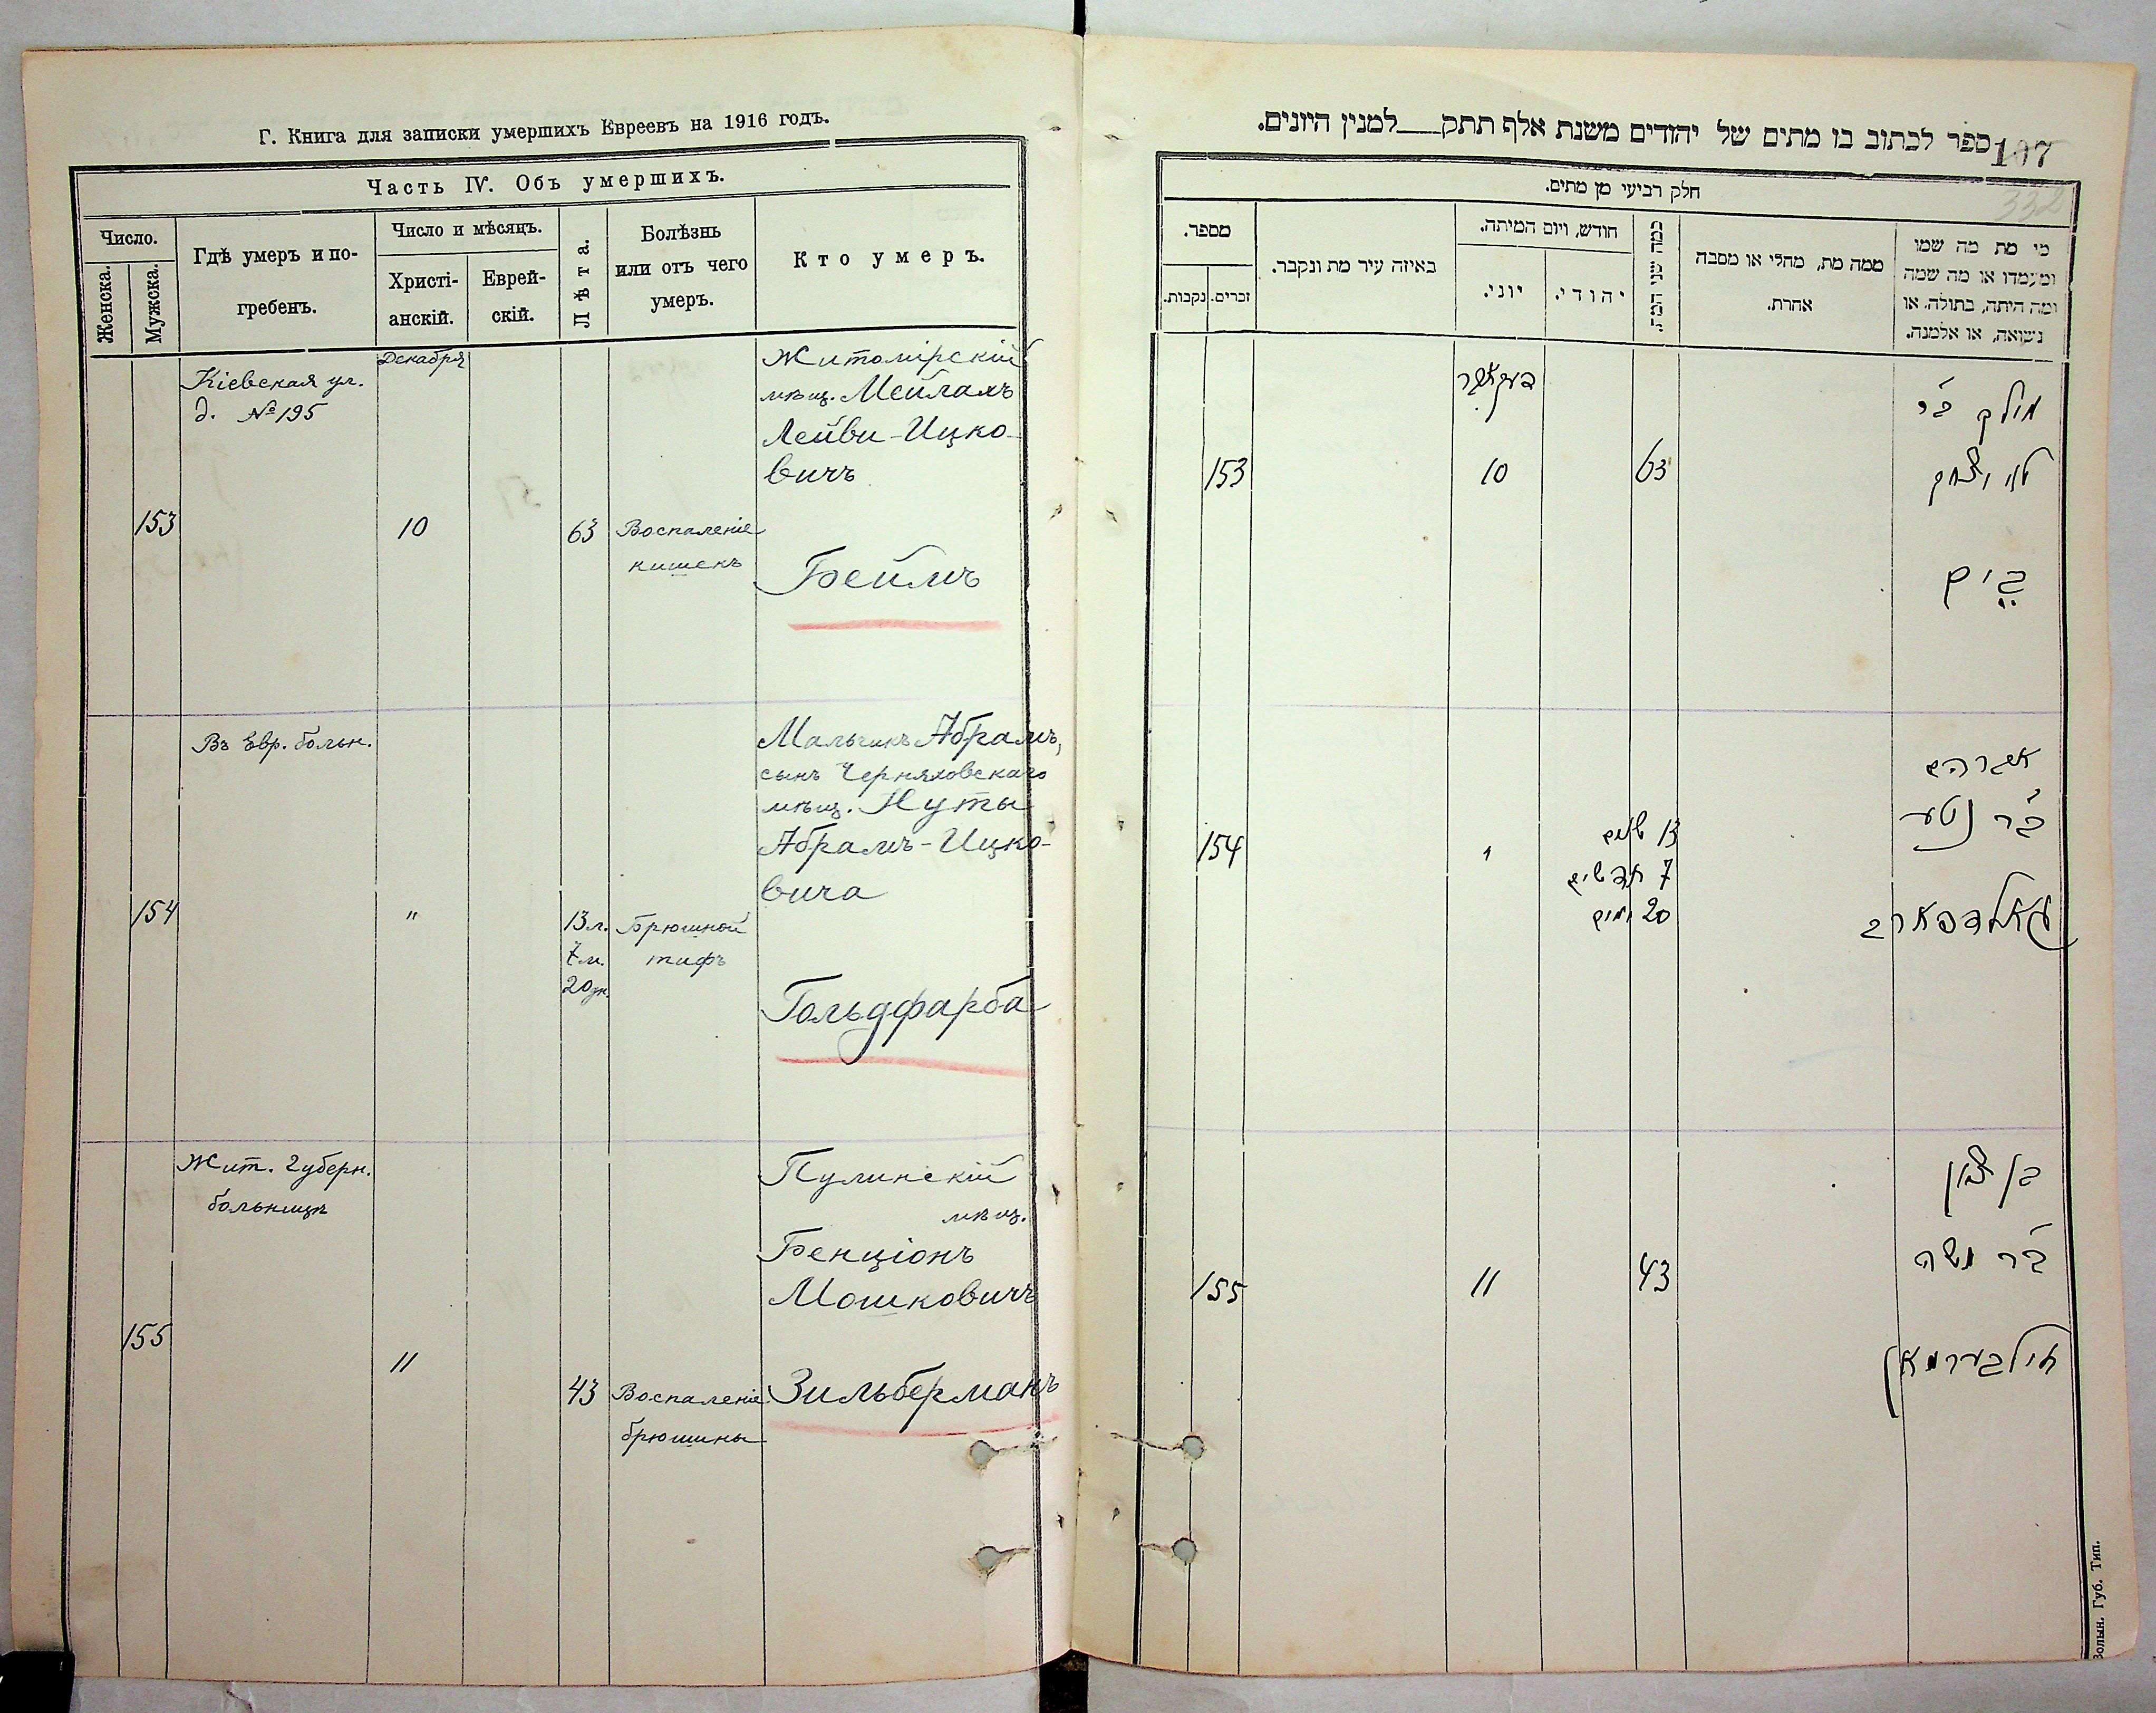 Г. Книга для записки умершихъ Евреевъ на 1916 годъ.
Часть IV. Объ умершихъ.
Число.
Женска.
Мужска.
Гдѣ умеръ и по-
гребенъ.
Число и мѣсяцъ.
Христі-
анскій.
Еврей-
скій.
Лѣта.
Болѣзнь
или отъ чего
умеръ.
Кто умеръ.
153
Кіевская ул.
д. №195
Декабря
10
63
Воспаленіе
кишекъ
Житомірскій
мѣщ. Мейлахъ
Лейви-Ицко-
вичъ
Беймъ
154
Въ Евр. больн.
"
13 л.
7 м.
20 дн.
Брюшной
тифъ
Мальчикъ Абрамъ,
сынъ Черняховскаго
мѣщ. Нуты
Абрамъ-Ицко-
вича
Гольдфарба
155
Жит. Губерн.
больницѣ
11
43
Воспаленіе
брюшины
Пулинскій
мѣщ.
Бенціонъ
Мошковичъ
Зильберманъ
ספר לכתוב בו מתים של יהודים משנת אלף תתק למנין היונים.
107
332
חלק רביעי מן מתים.
מספר.
נקבות.
זכרים.
באיזה עיר מת ונקבר.
חודש, ויום המיתה.
יוני.
יהודי.
כמה שני המת.
ממה מת, מחלי או מסבה
אחרת.
מי מת מה שמו
ומעמדו או מה שמה
ומה היתה, בתולה, או
נשואה, או אלמנה.
153
דעקאבר
10
63
מילך ב״ר
לוי יצחק
ביים
154
"
13 שנים
7 חדשים
20 ימים
אברהם
ב״ר נטע
גאלדפארב
155
11
43
בן ציון
ב״ר משה
זילבערמאן
Волын. Губ. Тип.